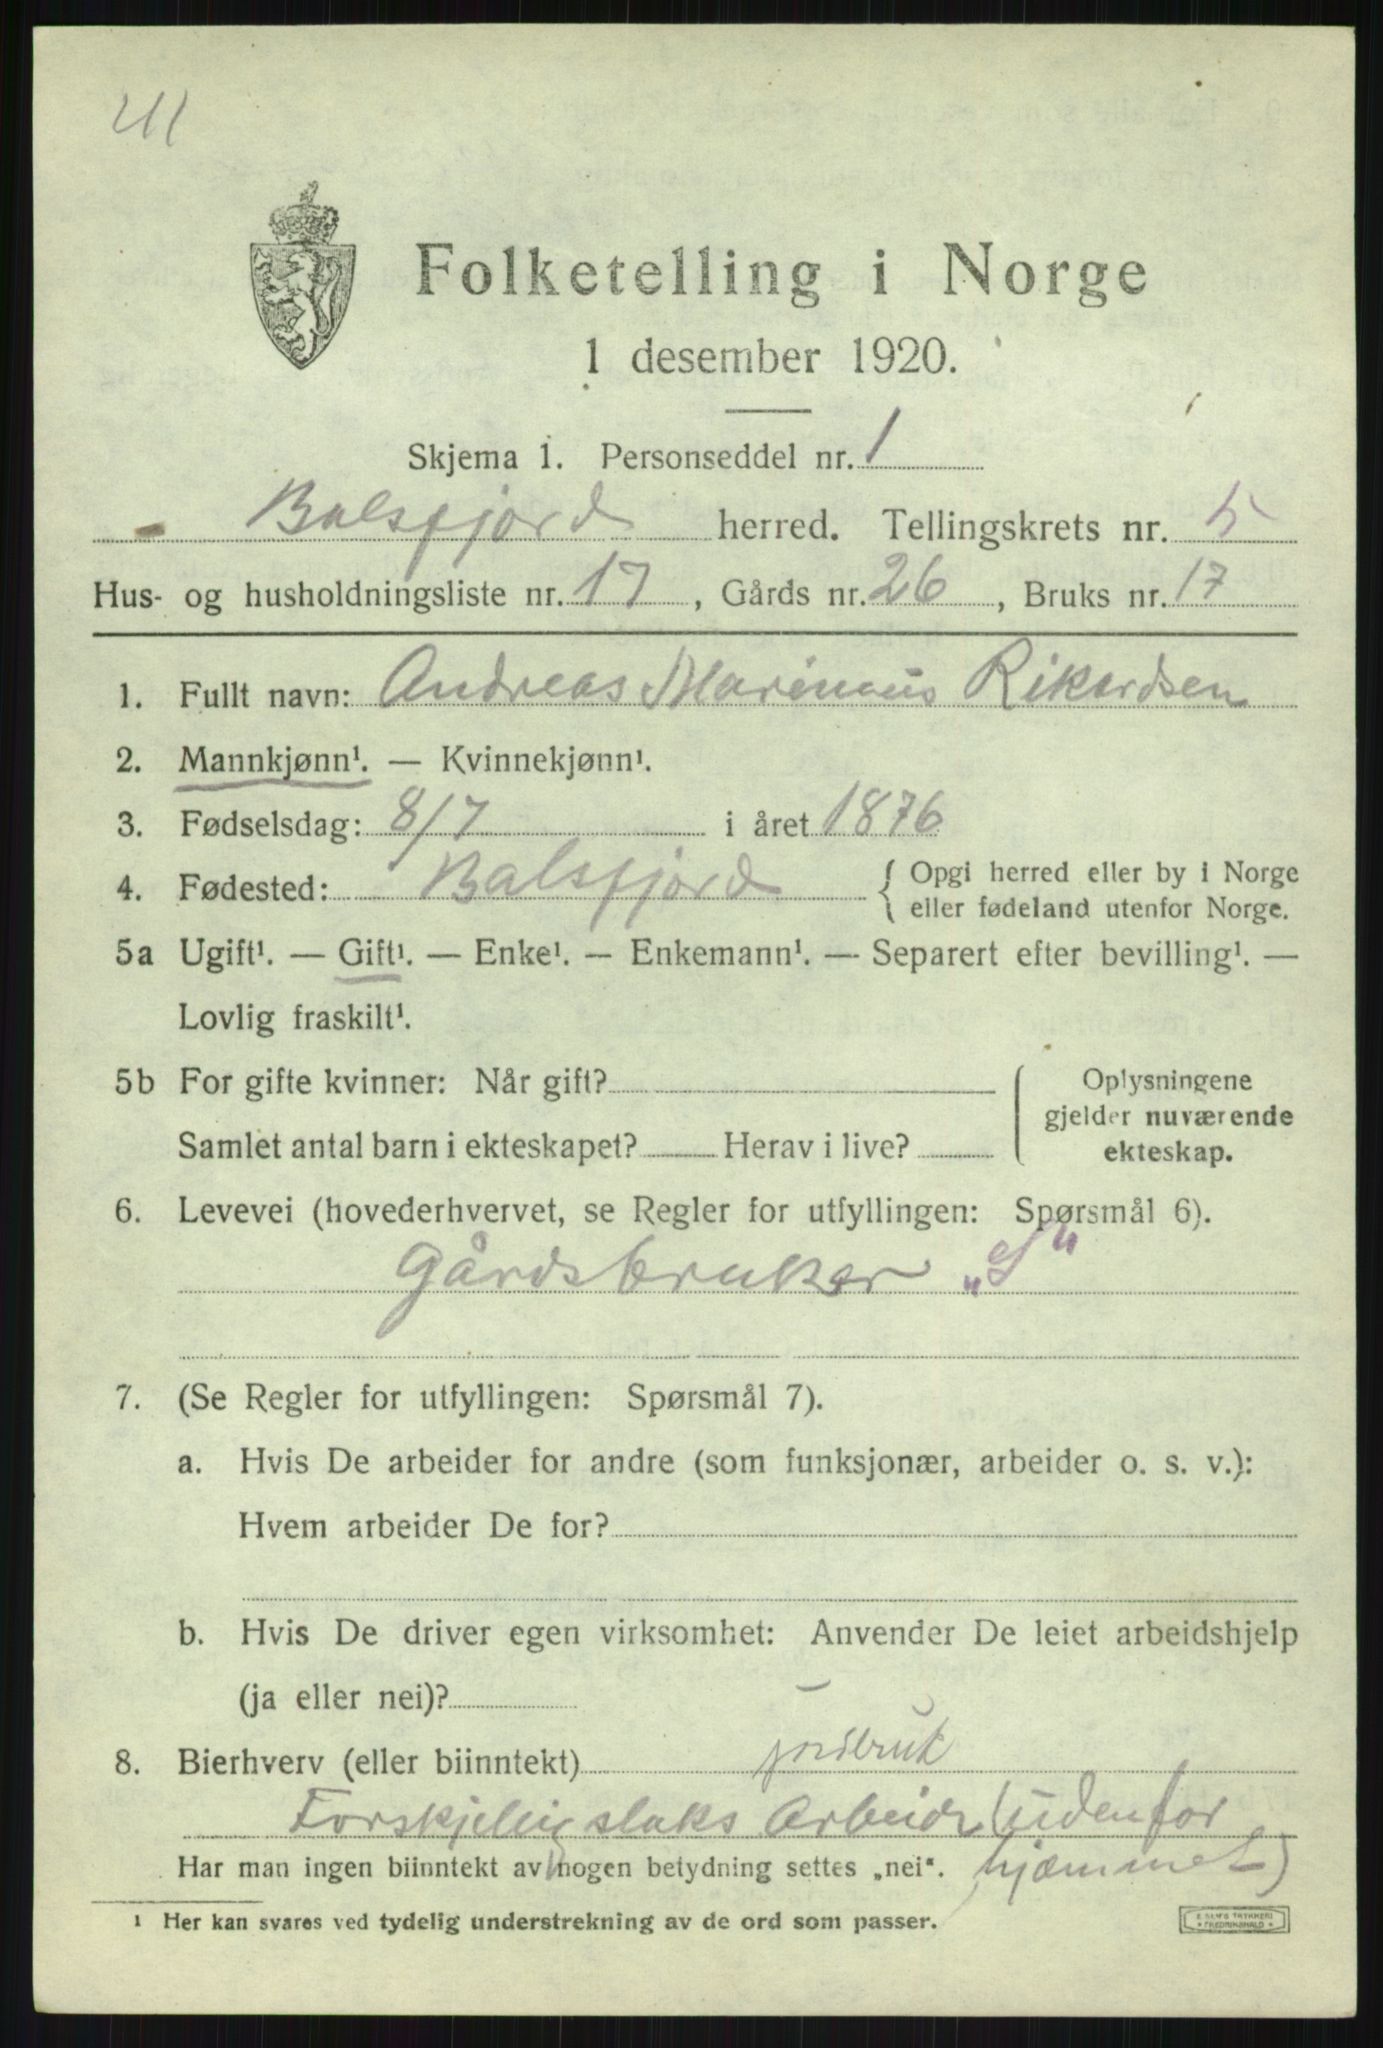 Folketelling i Norge
1 desember 1920.
Skjema 1. Personseddel nr. 1
Balsfjord herred. Tellingskrets nr. 5
Hus- og husholdningsliste nr. 17, Gårds nr. 26, Bruks nr. 17
1. Fullt navn: Andreas Marinius Rikardsen
2. Mannkjønn¹. — Kvinnekjønn¹.
3. Fødselsdag: 8/7 i året 1876
4. Fødested: Balsfjord { Opgi herred eller by i Norge
eller fødeland utenfor Norge.
5a Ugift¹. — Gift¹. — Enke¹. — Enkemann¹. — Separert efter bevilling¹. —
Lovlig fraskilt¹.
5b For gifte kvinner: Når gift?
Samlet antal barn i ekteskapet? Herav i live?
Oplysningene
gjelder nuværende
ekteskap.
6. Levevei (hovederhvervet, se Regler for utfyllingen: Spørsmål 6).
Gårdsbruker „S"
7. (Se Regler for utfyllingen: Spørsmål 7).
a. Hvis De arbeider for andre (som funksjonær, arbeider o. s. v.):
Hvem arbeider De for?
b. Hvis De driver egen virksomhet: Anvender De leiet arbeidshjelp
(ja eller nei)?
8. Bierhverv (eller biinntekt) jordbruk
Forskjellig slaks Arbeide (udenfor
hjæmmet)
Har man ingen biinntekt av nogen betydning settes „nei“.
¹ Her kan svares ved tydelig understrekning av de ord som passer.